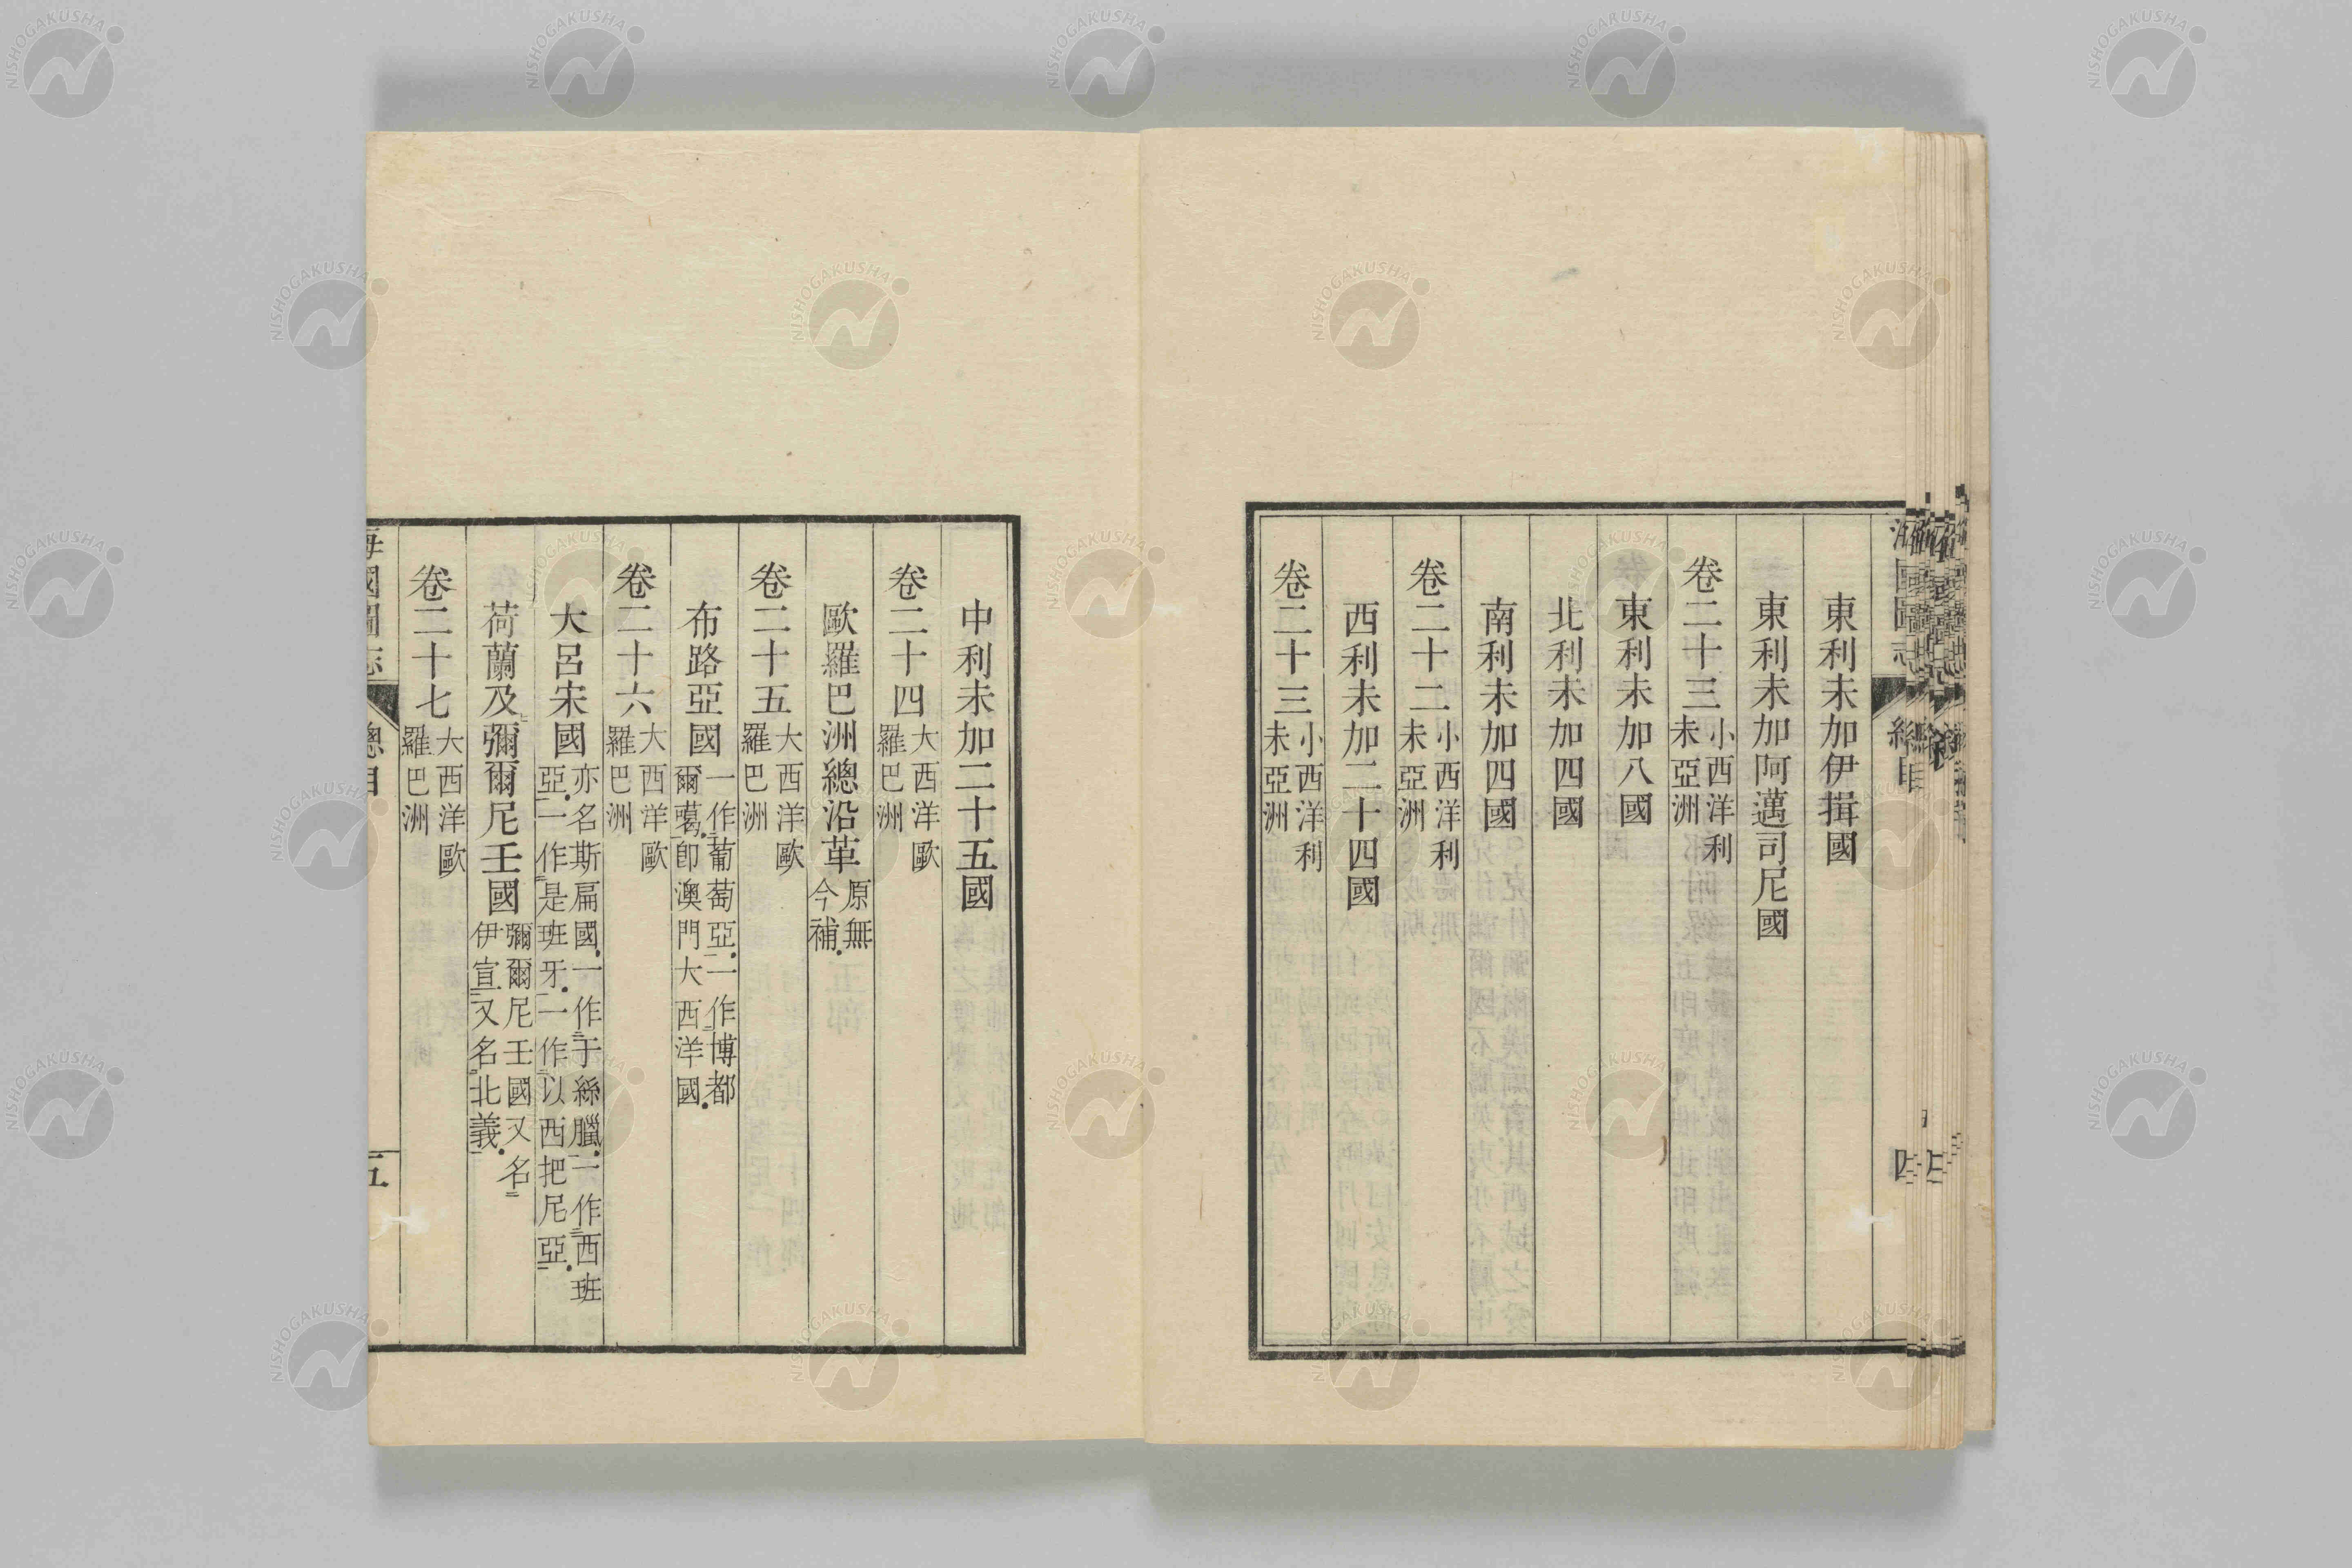 海國圖志 總目 四
東利未加伊揖國
東利未加阿邁司尼國
卷二十三 小西洋利
未亞洲
東利未加八國
北利未加四國
南利未加四國
卷二十二 小西洋利
未亞洲
西利未加二十四國
卷二十三 小西洋利
未亞洲
中利未加二十五國
卷二十四 大西洋歐
羅巴洲
歐羅巴洲總沿革 原無
今補
卷二十五 大西洋歐
羅巴洲
布路亞國 一作葡萄亞一作博都
爾葛卽澳門大西洋國
卷二十六 大西洋歐
羅巴洲
大呂宋國 亦名斯扁國一作于絲臘一作西班
亞一作是班牙一作以西把尼亞
荷蘭及彌爾尼壬國 彌爾尼壬國又名
伊宣又名北義
卷二十七 大西洋歐
羅巴洲
海國圖志 總目 五
NISHOGAKUSHA